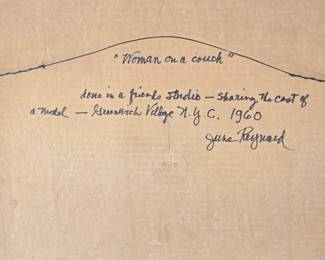 "Woman on a couch"
done in a friends studio — sharing the cost of
a model — Greenwich Village N.Y.C. 1960
June Raynard